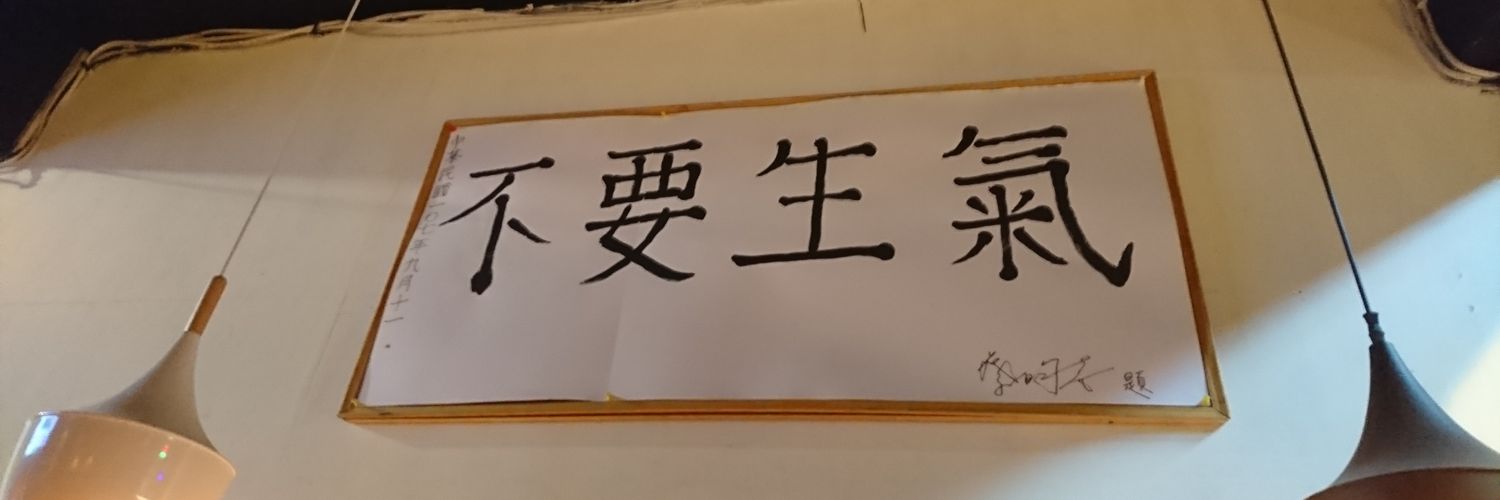 不要生氣
中華民國一〇七年九月十一
題